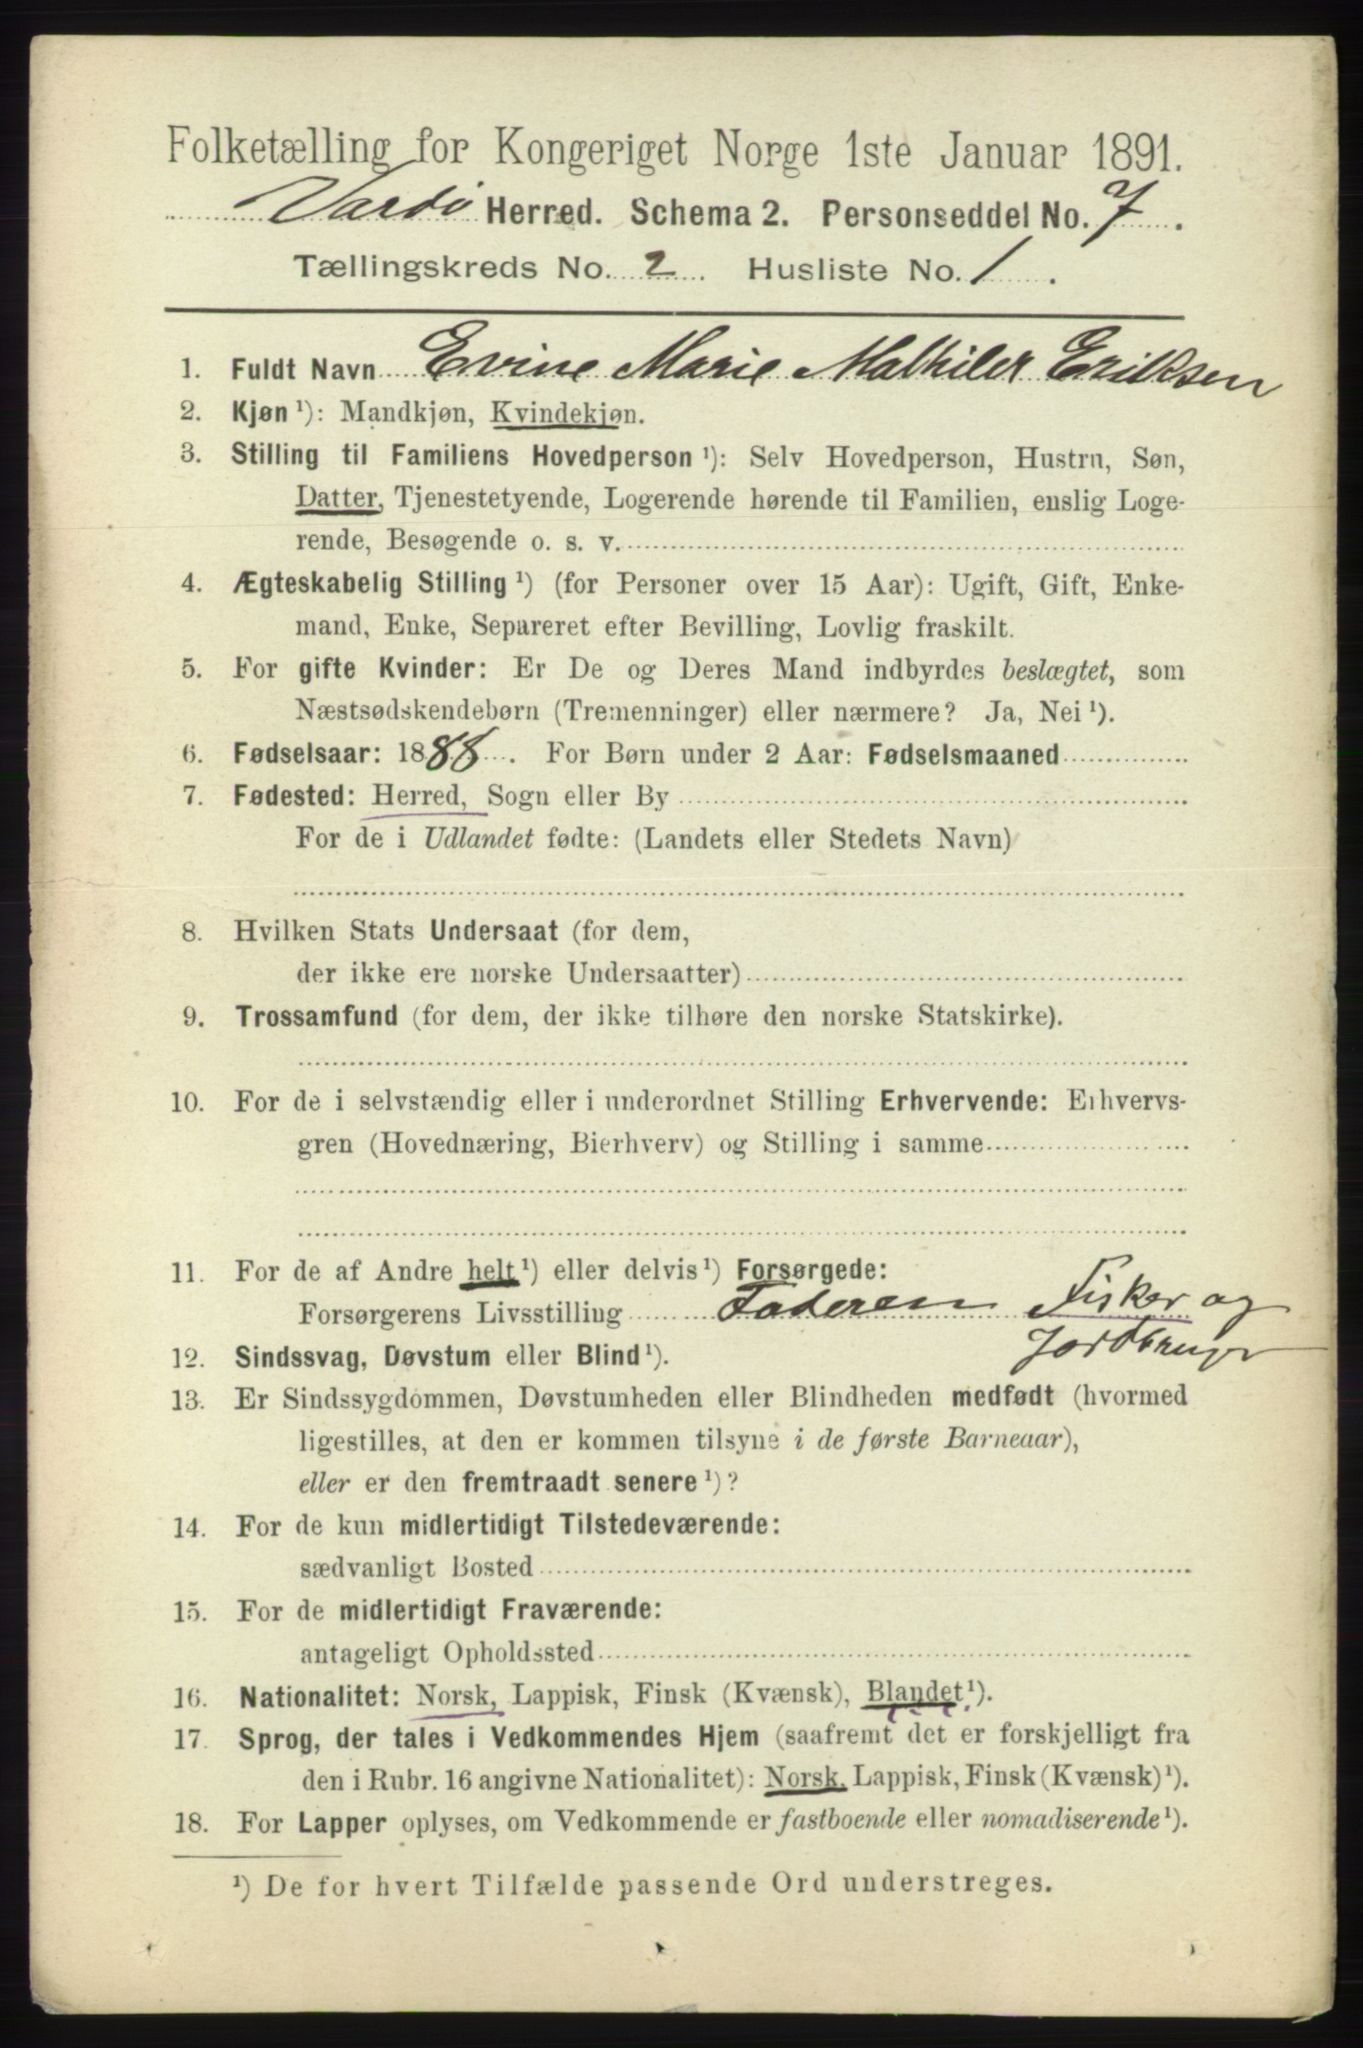 Folketælling for Kongeriget Norge 1ste Januar 1891.
Vardø Herred. Schema 2. Personseddel No. 7.
Tællingskreds No. 2 Husliste No. 1.
1. Fuldt Navn Evine Marie Mathiler Eriksen
2. Kjøn ¹): Mandkjøn, Kvindekjøn.
3. Stilling til Familiens Hovedperson ¹): Selv Hovedperson, Hustru, Søn,
Datter, Tjenestetyende, Logerende hørende til Familien, enslig Loge-
rende, Besøgende o. s. v.
4. Ægteskabelig Stilling ¹) (for Personer over 15 Aar): Ugift, Gift, Enke-
mand, Enke, Separeret efter Bevilling, Lovlig fraskilt.
5. For gifte Kvinder: Er De og Deres Mand indbyrdes beslægtet, som
Næstsødskendebørn (Tremenninger) eller nærmere? Ja, Nei ¹).
6. Fødselsaar: 1888. For Børn under 2 Aar: Fødselsmaaned
7. Fødested: Herred, Sogn eller By
For de i Udlandet fødte: (Landets eller Stedets Navn)
8. Hvilken Stats Undersaat (for dem,
der ikke ere norske Undersaatter)
9. Trossamfund (for dem, der ikke tilhøre den norske Statskirke).
10. For de i selvstændig eller i underordnet Stilling Erhvervende: Erhvervs-
gren (Hovednæring, Bierhverv) og Stilling i samme
11. For de af Andre helt ¹) eller delvis ¹) Forsørgede:
Forsørgerens Livsstilling Faderen Fisker og
Jordbruger
12. Sindssvag, Døvstum eller Blind ¹).
13. Er Sindssygdommen, Døvstumheden eller Blindheden medfødt (hvormed
ligestilles, at den er kommen tilsyne i de første Barneaar),
eller er den fremtraadt senere ¹)?
14. For de kun midlertidigt Tilstedeværende:
sædvanligt Bosted
15. For de midlertidigt Fraværende:
antageligt Opholdssted
16. Nationalitet: Norsk, Lappisk, Finsk (Kvænsk), Blandet ¹).
17. Sprog, der tales i Vedkommendes Hjem (saafremt det er forskjelligt fra
den i Rubr. 16 angivne Nationalitet): Norsk, Lappisk, Finsk (Kvænsk) ¹).
18. For Lapper oplyses, om Vedkommende er fastboende eller nomadiserende ¹).
¹) De for hvert Tilfælde passende Ord understreges.